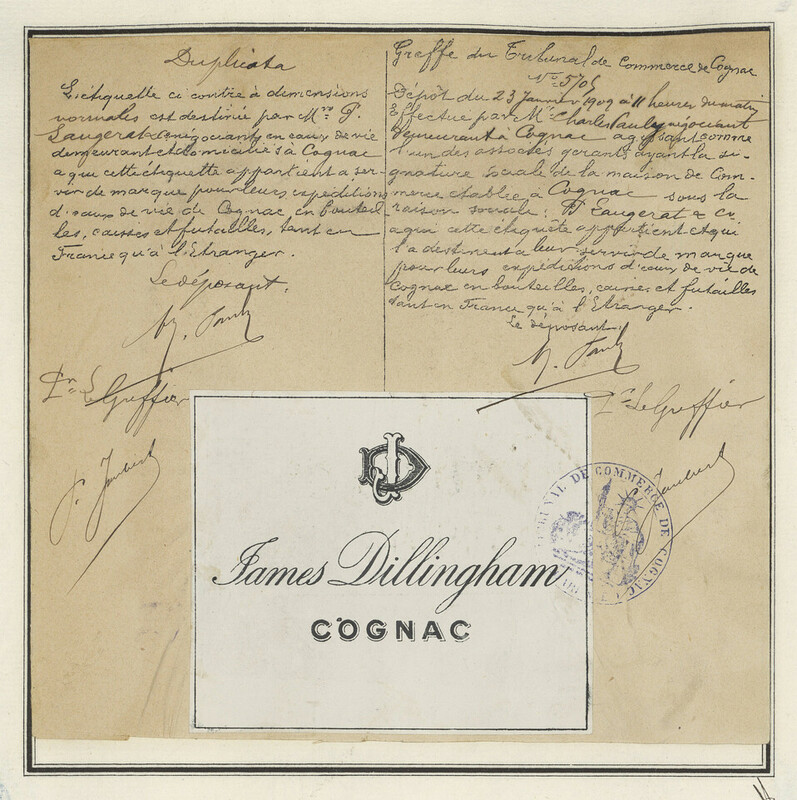 Duplicata
L'étiquette ci contre à dimensions
normales est destinée par Mrs P.
Laugerat & Cie négociants en eaux de vie
demeurant et domiciliés à Cognac
a qui cette étiquette appartient a ser-
vir de marque pour leurs expéditions
d'eaux de vie de Cognac, en bouteil-
les, caisses et futailles, tant en
France qu'à l'Etranger.
Le déposant,
Pr Le Greffier
Greffe du Tribunal de Commerce de Cognac
No 5706
Dépôt du 23 Janvier 1909 à 11 heures du matin
Effectué par Mr Charles Pauly négociant
demeurant à Cognac agissant comme
l'un des associés gérants ayant la si-
gnature sociale de la maison de Com-
merce établie à Cognac sous la
raison sociale: P Laugerat & Co
a qui cette étiquette appartient et qui
l'a destinent a leur servir de marque
pour leurs expéditions d'eaux de vie de
Cognac en bouteilles, caisses et futailles
tant en France qu'à l'Etranger.
Le déposant,
Pr Le Greffier
JD
James Dillingham
COGNAC
TRIBUNAL DE COMMERCE DE COGNAC